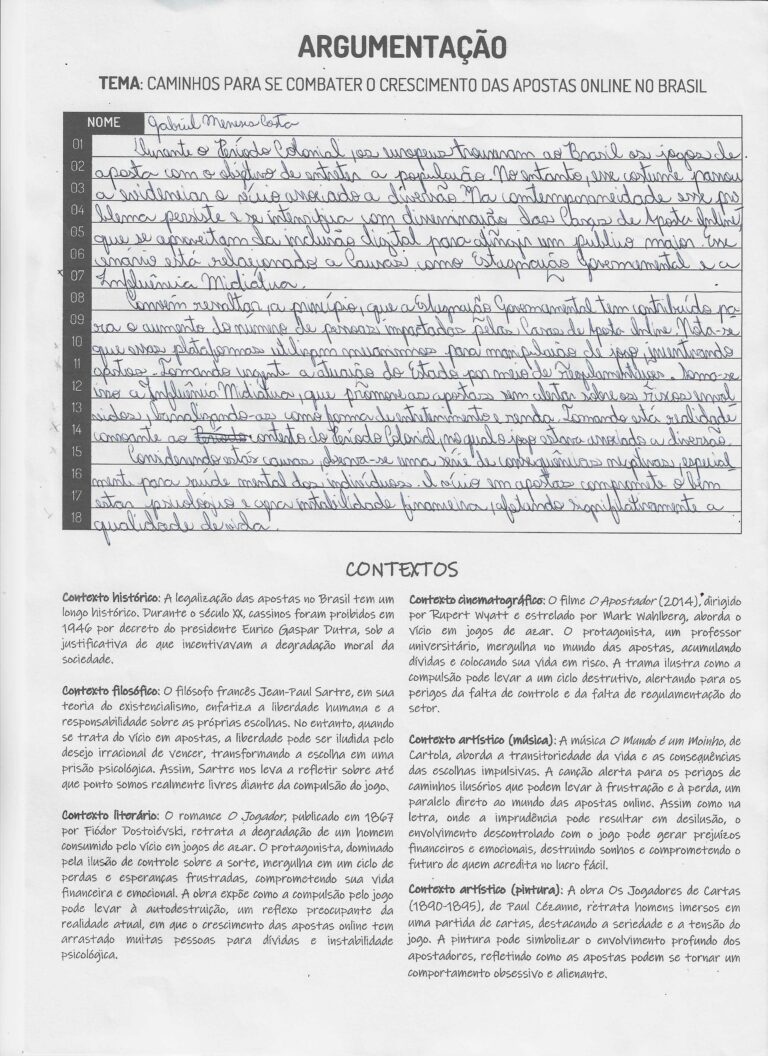 ARGUMENTAÇÃO
TEMA: CAMINHOS PARA SE COMBATER O CRESCIMENTO DAS APOSTAS ONLINE NO BRASIL
NOME Gabriel Menezes Costa
01 Durante o Período Colonial, os europeus trouxeram ao Brasil os jogos de
02 aposta com o objetivo de entreter a população. No entanto, esse costume passou
03 a evidenciar o vício associado a diversão. Na contemporaneidade esse pro
04 blema persiste e se intensifica com disseminação das Casas de Aposta Online,
05 que se aproveitam da inclusão digital para atingir um público maior. Esse
06 cenário está relacionado a Causas como Estagnação Governamental e a
07 Influência Midiática.
08 Convém ressaltar, a princípio, que a Estagnação Governamental tem contribuído pa-
09 ra o aumento do número de pessoas impactadas pelas Casas de Aposta Online. Nota-se
10 que essas plataformas utilizam mecanismos para manipulação de jogo, incentivando
11 apostas. Tornando urgente a atuação do Estado por meio de Regulamentações. Soma-se
12 isso a Influência Midiática, que promove as apostas sem alertar sobre os riscos envol
13 vidos, banalizando-as como forma de entretenimento e renda. Tornando está realidade
14 consoante ao contexto do Período Colonial, no qual o jogo estava associado a diversão.
15 Considerando estás causas, observa-se uma série de consequências negativas, especial-
16 mente para saúde mental dos indivíduos. O vício em apostas compromete o bem
17 estar psicológico e gera instabilidade financeira, afetando significativamente a
18 qualidade de vida.
CONTEXTOS
Contexto histórico: A legalização das apostas no Brasil tem um
longo histórico. Durante o século XX, cassinos foram proibidos em
1946 por decreto do presidente Eurico Gaspar Dutra, sob a
justificativa de que incentivavam a degradação moral da
sociedade.
Contexto filosófico: O filósofo francês Jean-Paul Sartre, em sua
teoria do existencialismo, enfatiza a liberdade humana e a
responsabilidade sobre as próprias escolhas. No entanto, quando
se trata do vício em apostas, a liberdade pode ser iludida pelo
desejo irracional de vencer, transformando a escolha em uma
prisão psicológica. Assim, Sartre nos leva a refletir sobre até
que ponto somos realmente livres diante da compulsão do jogo.
Contexto literário: O romance O Jogador, publicado em 1867
por Fiódor Dostoiévski, retrata a degradação de um homem
consumido pelo vício em jogos de azar. O protagonista, dominado
pela ilusão de controle sobre a sorte, mergulha em um ciclo de
perdas e esperanças frustradas, comprometendo sua vida
financeira e emocional. A obra expõe como a compulsão pelo jogo
pode levar à autodestruição, um reflexo preocupante da
realidade atual, em que o crescimento das apostas online tem
arrastado muitas pessoas para dívidas e instabilidade
psicológica.
Contexto cinematográfico: O filme O Apostador (2014), dirigido
por Rupert Wyatt e estrelado por Mark Wahlberg, aborda o
vício em jogos de azar. O protagonista, um professor
universitário, mergulha no mundo das apostas, acumulando
dívidas e colocando sua vida em risco. A trama ilustra como a
compulsão pode levar a um ciclo destrutivo, alertando para os
perigos da falta de controle e da falta de regulamentação do
setor.
Contexto artístico (música): A música O Mundo é um Moinho, de
Cartola, aborda a transitoriedade da vida e as consequências
das escolhas impulsivas. A canção alerta para os perigos de
caminhos ilusórios que podem levar à frustração e à perda, um
paralelo direto ao mundo das apostas online. Assim como na
letra, onde a imprudência pode resultar em desilusão, o
envolvimento descontrolado com o jogo pode gerar prejuízos
financeiros e emocionais, destruindo sonhos e comprometendo o
futuro de quem acredita no lucro fácil.
Contexto artístico (pintura): A obra Os Jogadores de Cartas
(1890-1895), de Paul Cézanne, retrata homens imersos em
uma partida de cartas, destacando a seriedade e a tensão do
jogo. A pintura pode simbolizar o envolvimento profundo dos
apostadores, refletindo como as apostas podem se tornar um
comportamento obsessivo e alienante.